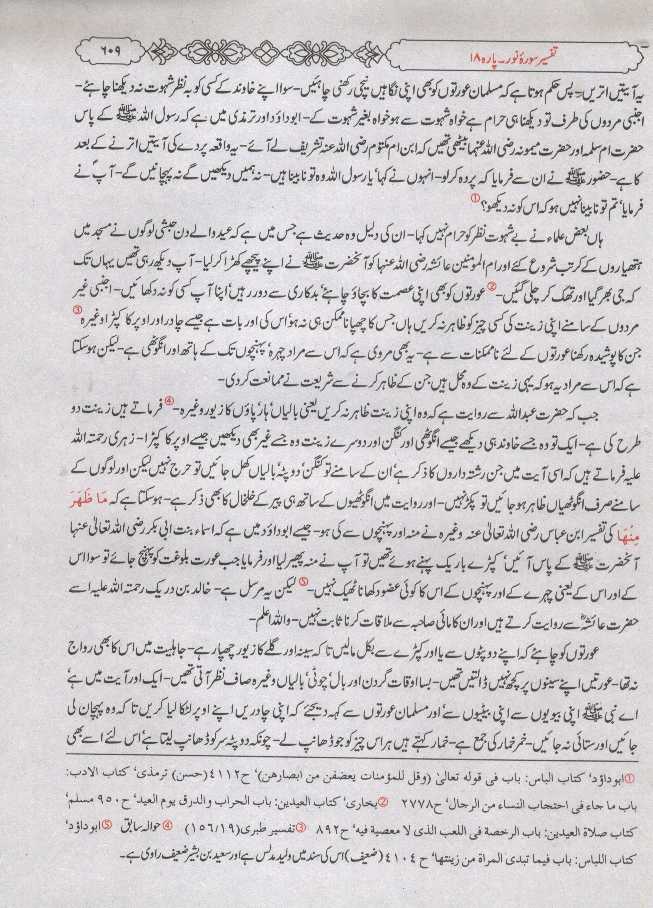 تفسیر سورۂ نور۔ پارہ ۱۸
۶۰۹
یہ آیتیں اتریں۔ پس حکم ہوتا ہے کہ مسلمان عورتوں کو بھی اپنی نگاہیں نیچی رکھنی چاہئیں۔ سوا اپنے خاوند کے کسی کو بہ نظر شہوت نہ دیکھنا چاہئے۔
اجنبی مردوں کی طرف تو دیکھنا ہی حرام ہے خواہ شہوت سے ہو خواہ بغیر شہوت کے۔ ابوداؤد اور ترمذی میں ہے کہ رسول اللہ ﷺ کے پاس
حضرت ام سلمہ اور حضرت میمونہ رضی اللہ عنہما بیٹھی تھیں کہ ابن ام مکتوم رضی اللہ عنہ تشریف لے آئے۔ یہ واقعہ پردے کی آیتیں اترنے کے بعد
کا ہے۔ حضور ﷺ نے ان سے فرمایا کہ پردہ کر لو۔ انہوں نے کہا' یا رسول اللہ وہ تو نابینا ہیں۔ نہ ہمیں دیکھیں گے نہ پہچانیں گے۔ آپؐ نے
فرمایا' تم تو نابینا نہیں ہو کہ اس کو نہ دیکھو؟ ①
ہاں بعض علماء نے بے شہوت نظر کو حرام نہیں کہا۔ ان کی دلیل وہ حدیث ہے جس میں ہے کہ عید والے دن حبشی لوگوں نے مسجد میں
ہتھیاروں کے کرتب شروع کئے اور ام المومنین عائشہ رضی اللہ عنہا کو آنحضرت ﷺ نے اپنے پیچھے کھڑا کر لیا۔ آپ دیکھ رہی تھیں یہاں تک
کہ جی بھر گیا اور تھک کر چلی گئیں۔ ② عورتوں کو بھی اپنی عصمت کا بچاؤ چاہئے' بدکاری سے دور رہیں' اپنا آپ کسی کو نہ دکھائیں۔ اجنبی غیر
مردوں کے سامنے اپنی زینت کی کسی چیز کو ظاہر نہ کریں ہاں جس کا چھپانا ممکن ہی نہ ہو' اس کی اور بات ہے جیسے چادر اور اوپر کا کپڑا وغیرہ ③
جن کا پوشیدہ رکھنا عورتوں کے لئے ناممکنات سے ہے۔ یہ بھی مروی ہے کہ اس سے مراد چہرہ' پہنچوں تک کے ہاتھ اور انگوٹھی ہے۔ لیکن ہو سکتا
ہے کہ اس سے مراد یہ ہو کہ یہی زینت کے وہ محل ہیں جن کے ظاہر کرنے سے شریعت نے ممانعت کر دی۔
جب کہ حضرت عبداللہ سے روایت ہے کہ وہ اپنی زینت ظاہر نہ کریں یعنی بالیاں' ہار' پاؤں کا زیور وغیرہ۔ ④ فرماتے ہیں زینت دو
طرح کی ہے۔ ایک تو وہ جسے خاوند ہی دیکھے جیسے انگوٹھی اور کنگن اور دوسرے زینت وہ جسے غیر بھی دیکھیں جیسے اوپر کا کپڑا۔ زہری رحمتہ اللہ
علیہ فرماتے ہیں کہ اسی آیت میں جن رشتہ داروں کا ذکر ہے' ان کے سامنے تو کنگن' دوپٹہ' بالیاں کھل جائیں تو حرج نہیں لیکن اور لوگوں کے
سامنے صرف انگوٹھیاں ظاہر ہو جائیں تو پکڑ نہیں۔ اور روایت میں انگوٹھیوں کے ساتھ ہی پیر کے خلخال کا بھی ذکر ہے۔ ہو سکتا ہے کہ مَا ظَهَرَ
مِنْهَا کی تفسیر ابن عباس رضی اللہ تعالیٰ عنہ وغیرہ نے منہ اور پہنچوں سے کی ہو۔ جیسے ابوداؤد میں ہے کہ اسماء بنت ابی بکر رضی اللہ تعالیٰ عنہا
آنحضرت ﷺ کے پاس آئیں' کپڑے باریک پہنے ہوئے تھیں تو آپ نے منہ پھیر لیا اور فرمایا جب عورت بلوغت کو پہنچ جائے تو سوا اس
کے اور اس کے یعنی چہرہ کے اور پہنچوں کے اس کا کوئی عضو دکھانا ٹھیک نہیں۔ ⑤ لیکن یہ مرسل ہے۔ خالد بن دریک رحمتہ اللہ علیہ اسے
حضرت عائشہؓ سے روایت کرتے ہیں اور ان کا مائی صاحبہ سے ملاقات کرنا ثابت نہیں۔ واللہ اعلم۔
عورتوں کو چاہئے کہ اپنے دوپٹوں سے یا اور کپڑے سے بکل مار لیں تا کہ سینہ اور گلے کا زیور چھپا رہے۔ جاہلیت میں اس کا بھی رواج
نہ تھا۔ عورتیں اپنے سینوں پر کچھ نہیں ڈالتیں تھیں۔ بسا اوقات گردن اور بال' چوٹی' بالیاں وغیرہ صاف نظر آتی تھیں۔ ایک اور آیت میں ہے'
اے نبی ﷺ اپنی بیویوں سے اپنی بیٹیوں سے' اور مسلمان عورتوں سے کہہ دیجئے کہ اپنی چادریں اپنے اوپر لٹکا لیا کریں تا کہ وہ پہچان لی
جائیں اور ستائی نہ جائیں۔ خمر خمار کی جمع ہے۔ خمار کہتے ہیں ہر اس چیز کو جو ڈھانپ لے۔ چونکہ دوپٹہ سر کو ڈھانپ لیتا ہے' اس لئے اسے بھی
① ابوداؤد' کتاب الباس: باب فی قوله تعالیٰ (وقل للمؤمنات یغضضن من ابصارهن)' ح ٤١١٢ (حسن) ترمذی' کتاب الادب:
باب ما جاء فی احتجاب النساء من الرجال' ح ٢٧٧٨ ② بخاری' کتاب العیدین: باب الحراب والدرق یوم العید' ح ٩٥٠ مسلم'
کتاب صلاة العیدین: باب الرخصة فی اللعب الذی لا معصیة فیه' ح ٨٩٢ ③ تفسیر طبری (١٥٦/١٩) ④ حوالہ سابق ⑤ ابوداؤد'
کتاب اللباس: باب فیما تبدی المراة من زینتها' ح ٤١٠٤ (ضعیف) اس کی سند میں ولید مدلس ہے اور سعید بن بشیر ضعیف راوی ہے۔